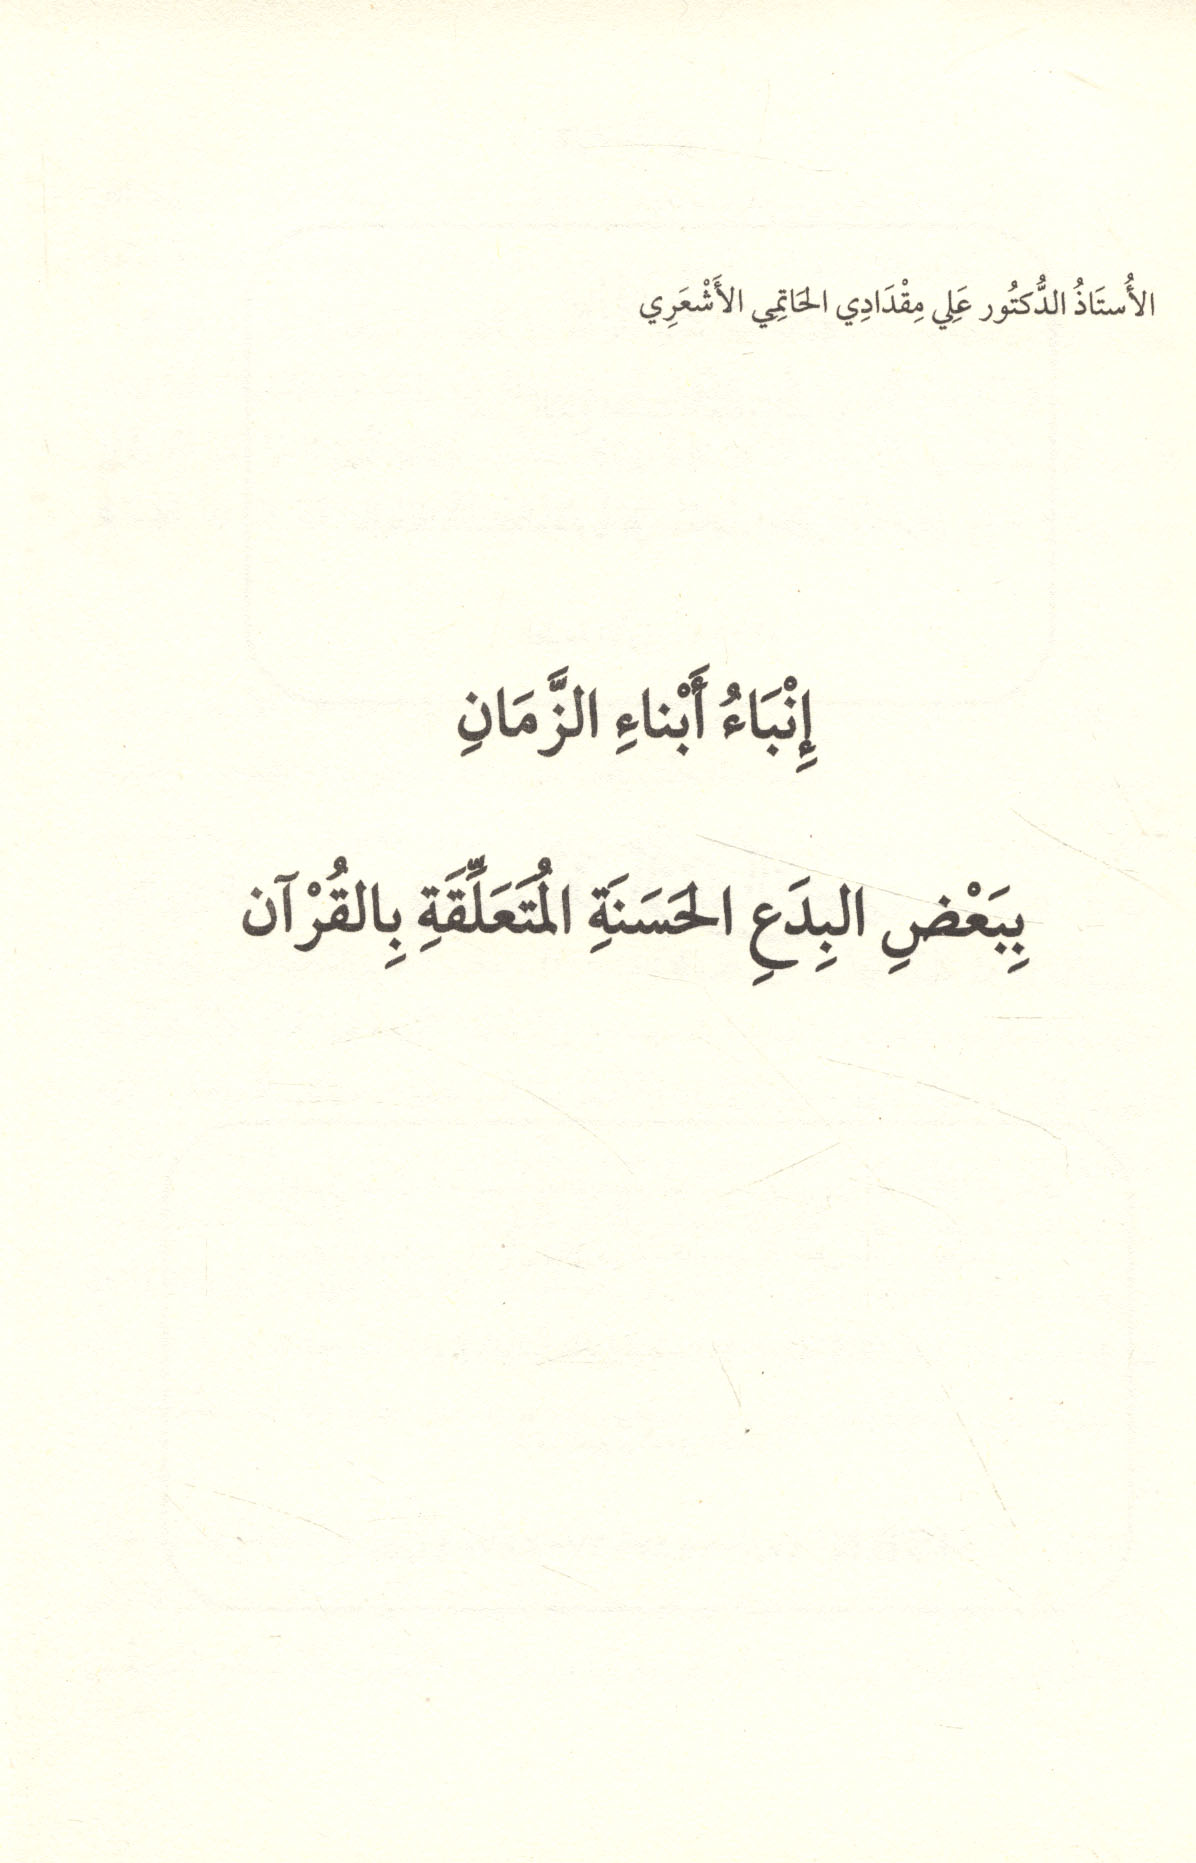 الأُستَاذُ الدُّكتُور عَلِي مِقْدَادِي الحَاتِمِي الأَشْعَرِي
إِنْبَاءُ أَبْناءِ الزَّمَانِ
بِبَعْضِ البِدَعِ الحَسَنَةِ المُتَعَلِّقَةِ بِالقُرْآن